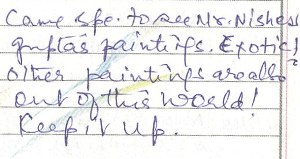 Came spe. to see Mr. Nishesl
guptas paintings. Exotic!
Other paintings are also
out of this world!
Keep it up.